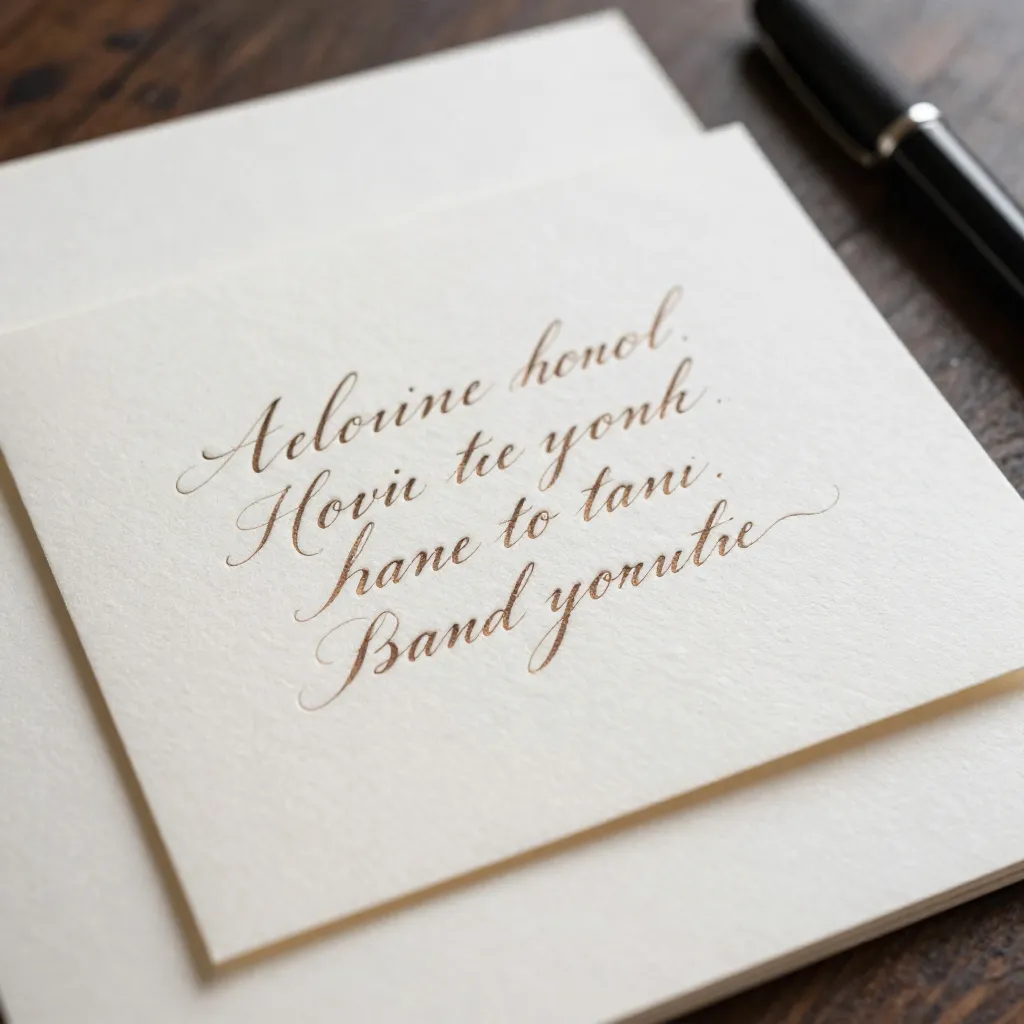 Aelovine honol.
Hovii tie yonh.
hane to tani.
Band yonutie